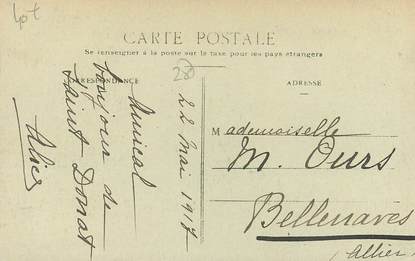 Lot
CARTE POSTALE
Se renseigner à la poste sur le taxe pour les pays étrangers
CORRESPONDANCE
ADRESSE
22 Mai 1917
Amical
bonjour de
Saint Donat
Alice
Mademoiselle
M. Ours
Bellenaves
(Allier)